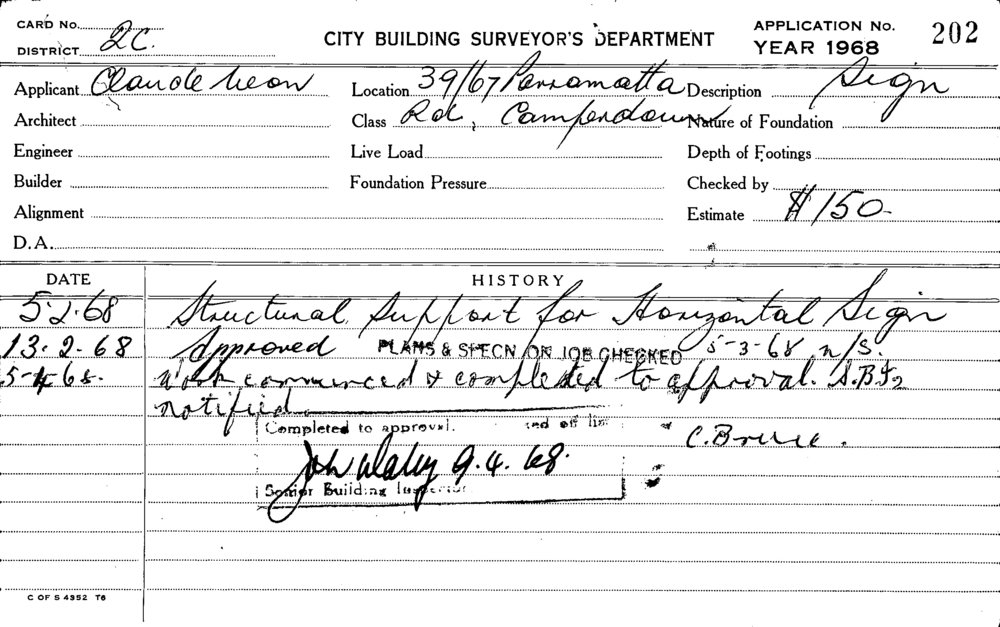 CARD No.
DISTRICT 2C.
CITY BUILDING SURVEYOR'S DEPARTMENT
APPLICATION No. 202
YEAR 1968
Applicant Claude Neon Location 39/67 Parramatta Description Sign
Architect Class Rd, Camperdown Nature of Foundation
Engineer Live Load Depth of Footings
Builder Foundation Pressure Checked by
Alignment Estimate $150-
D.A.
DATE HISTORY
5-2-68 Structural Support for Horizontal Sign
13.2.68 Approved PLANS & SPECN. ON JOB CHECKED 5-3-68 n/s.
5-4-68. Work commenced & completed to approval.
notified
Completed to approval. ed off list
C. Bruce.
9.4.68.
Senior Building Inspector
C OF S 4352 T6